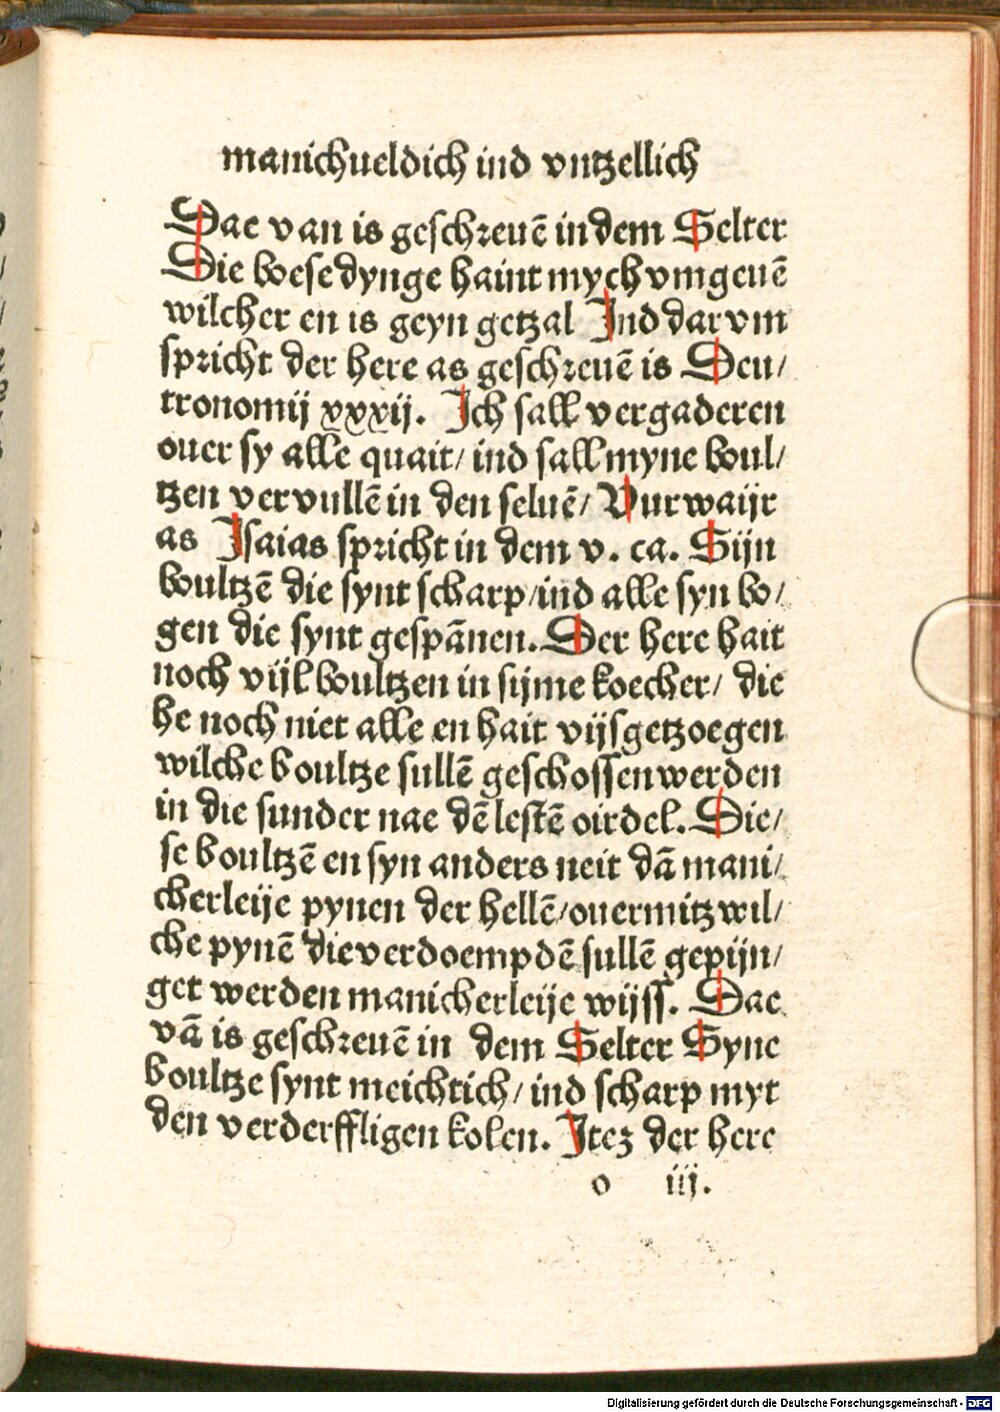 manichueldich ind vntzellich
Dae van is geschreuē in dem Selter
Die boese dynge haint mych vmgeuē
wilcher en is geyn getzal Ind dar vm
spricht der here as geschreuē is Deu/
tronomij xxxij. Ich sall vergaderen
ouer sy alle quait/ ind sall myne boul/
tzen vervullē in den seluē/ Vurwaijr
as Isaias spricht in dem v. ca. Sijn
boultzē die synt scharp/ind alle syn bo/
gen die synt gespānen. Der here hait
noch vijl boultzen in sijme koecher/ die
he noch niet alle en hait vijsgetzoegen
wilche boultze sullē geschossen werden
in die sunder nae dē lestē oirdel. Die/
se boultzē en syn anders neit dā mani/
cherleije pynen der hellē/ouermitz wil/
che pynē die verdoempdē sullē gepijn/
get werden manicherleije wijss. Dae
vā is geschreuē in dem Selter Syne
boultze synt meichtich/ ind scharp myt
den verderffligen kolen. Itez der here
o iij.
Digitalisierung gefördert durch die Deutsche Forschungsgemeinschaft - DFG